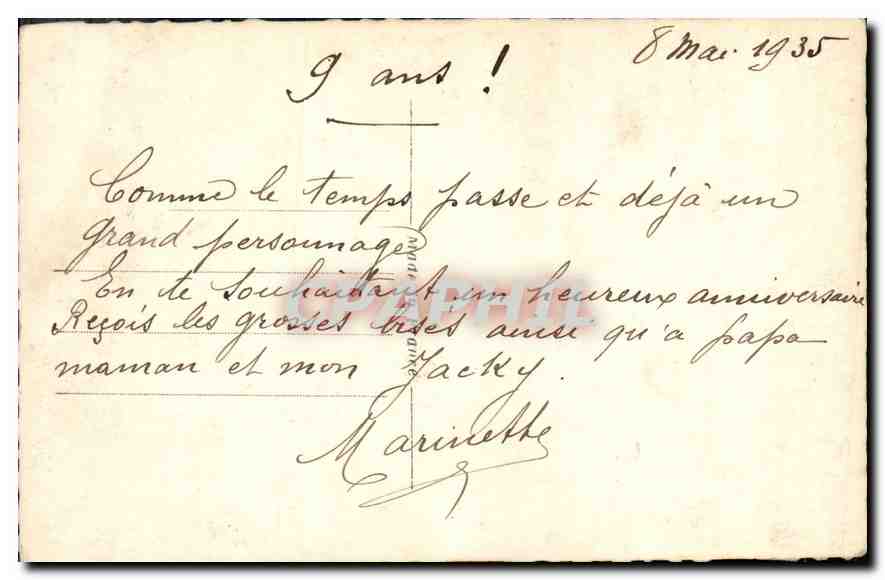 8 Mai 1935
9 ans !
Comme le temps passe et déjà un
grand personnage
En te souhaitant un heureux anniversaire
Reçois les grosses bises ainsi qu'a papa
maman et mon Jacky.
Marinette
Made in France
CPAPHIL